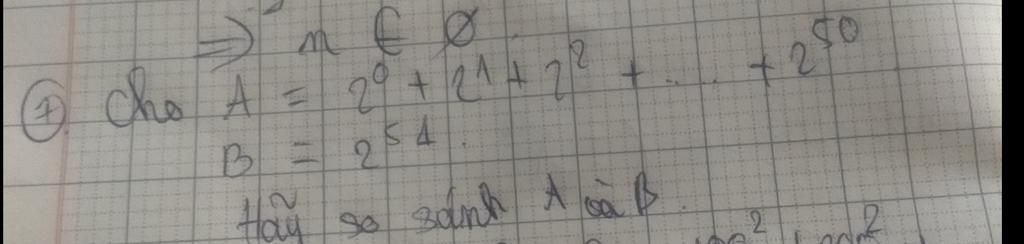 ⇒ n ∈ Ø.
⑦ Cho A = 2⁰ + 2¹ + 2² + ..... + 2⁵⁰
B = 2⁵¹.
Hãy so sánh A và B.